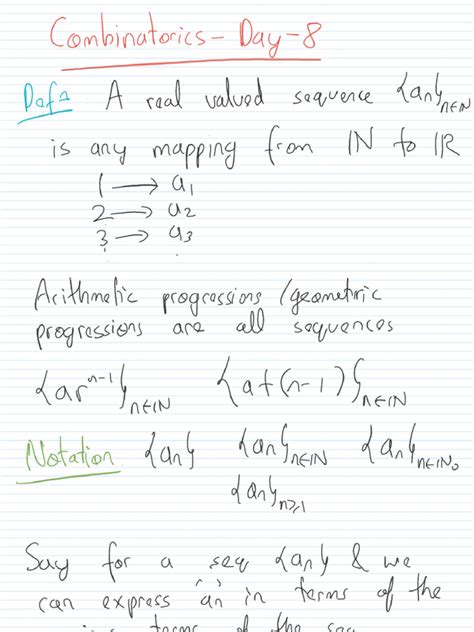 Combinatorics - Day - 8
Def: A real valued sequence {an}n∈N
is any mapping from IN to IR
1 → a1
2 → a2
3 → a3
Arithmetic progressions / geometric
progressions are all sequences
{ar^n-1}n∈IN {a+(n-1)}n∈IN
Notation {an} {an}n∈IN {an}n∈IN0
{an}n≥1
Say for a seq {an} & we
can express "an" in terms of the
terms of the seq